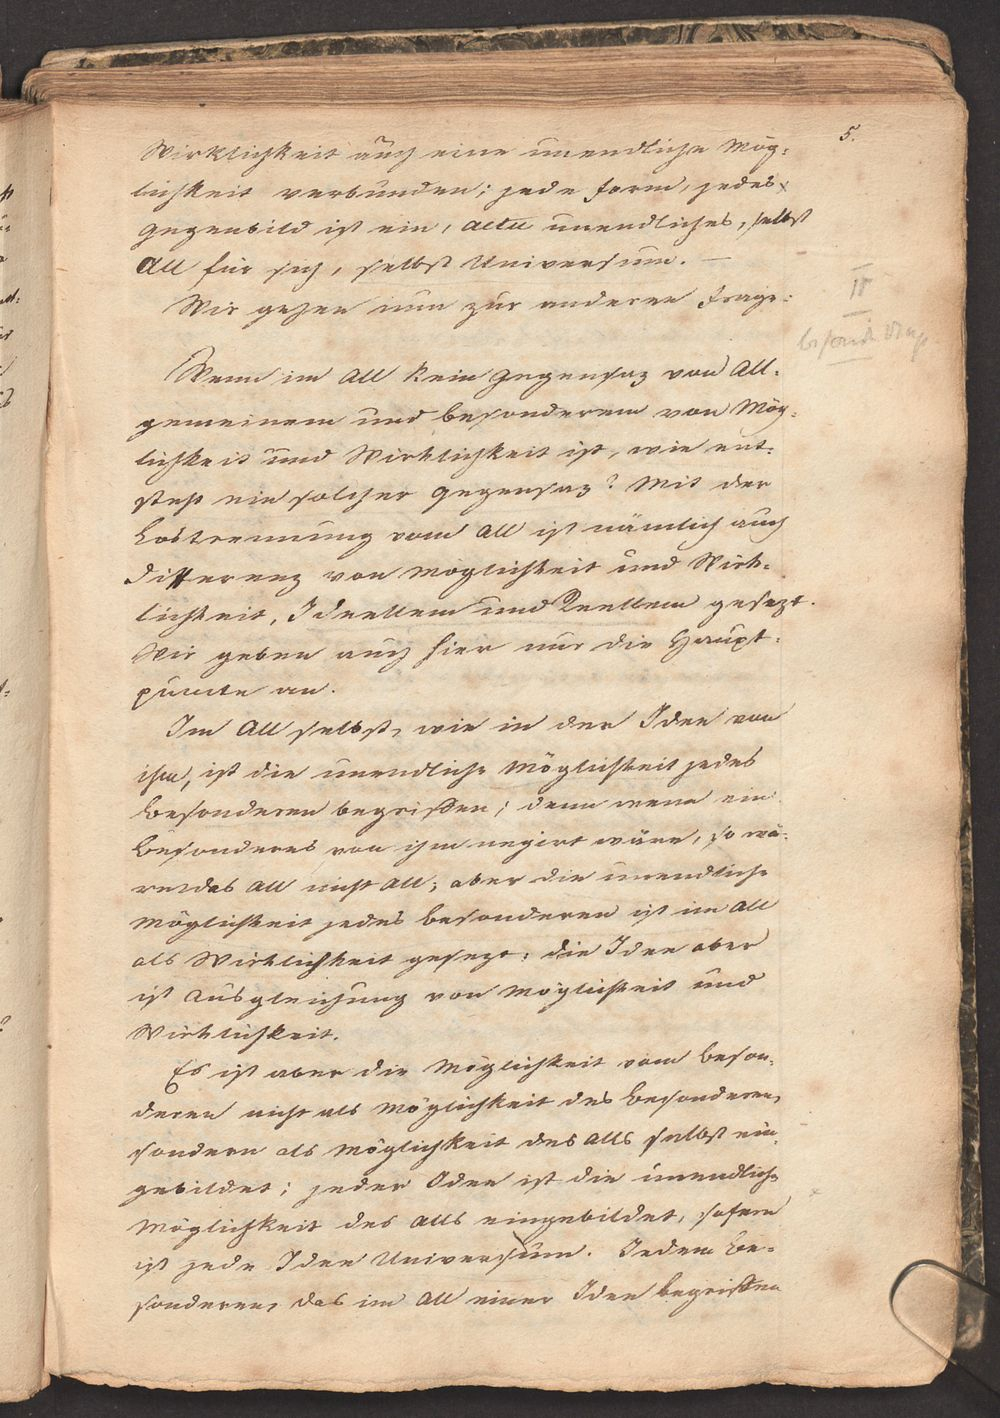 5.
Wirklichkeit auch eine unendliche Mög-
lichkeit verbunden; jede Form, jedes
Gegenbild ist ein, actu unendliches, selbst
All für sich, selbst Universum. —
Wir gehen nun zur anderen Frage:
II
Wenn im All kein Gegensaz von All-
gemeinem und besonderem von Mög-
lichkeit und Wirklichkeit ist, wie ent-
steht ein solcher Gegensaz? Mit der
Lostrennung vom All ist nämlich auch
Differenz von Möglichkeit und Wirk-
lichkeit, Ideellem und Reellem gesezt.
Wir geben auch hier nur die Haupt-
puncte an.
Im All selbst, wie in der Idee von
ihm, ist die unendliche Möglichkeit jedes
Besonderen begriffen; denn wenn ein
Besonderes von ihm negirt wäre, so wä-
re das All nicht All; aber die unendliche
Möglichkeit jedes Besonderen ist im All
als Wirklichkeit gesezt: die Idee aber
ist Ausgleichung von Möglichkeit und
Wirklichkeit.
Es ist aber die Möglichkeit vom Beson-
deren nicht als Möglichkeit des Besonderen,
sondern als Möglichkeit des Alls selbst ein-
gebildet; jeder Idee ist die unendliche
Möglichkeit des Alls eingebildet, sofern
ist jede Idee Universum. Jedem Be-
sonderen, das im All einer Idee begriffen